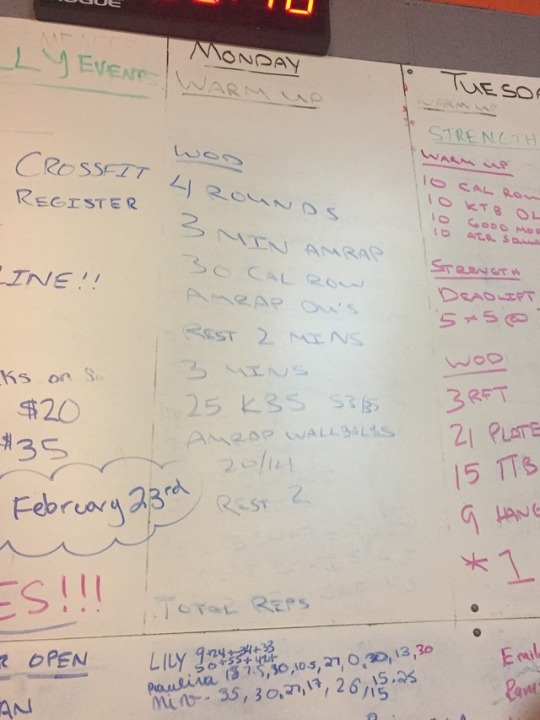 LLY EVENTS
CROSSFIT
REGISTER
LINE!!
ks on
$20
$35
February 23rd
ES!!!
R OPEN
AN
MONDAY
WARM UP
WOD
4 ROUNDS
3 MIN AMRAP
30 CAL ROW
AMRAP OU'S
REST 2 MINS
3 MINS
25 KBS 53/35
AMRAP WALLBALLS
20/14
REST 2
TOTAL REPS
LILY 9
50+55+42+
30, 10.5, 27, 0, 30, 13, 30
35, 30, 27, 17, 26, 15, 25
15
TUESD
WARM UP
STRENGTH
WARM UP
10 CAL ROW
10 KTB OL
10 GOOD MO
10 AIR SQUA
STRENGTH
DEADLIFT
5 x 5 @
WOD
3 RFT
21 PLATE
15 TTB
9 HANG
*1
Emil